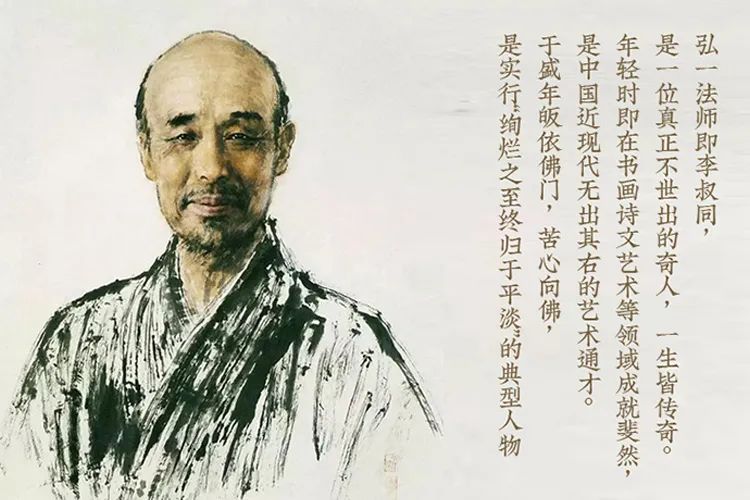 弘一法师即李叔同，
是一位真正不世出的奇人，一生皆传奇。
年轻时即在书画诗文艺术等领域成就斐然，
是中国近现代无出其右的艺术通才。
于盛年皈依佛门，苦心向佛，
是实行“绚烂之至终归于平淡”的典型人物